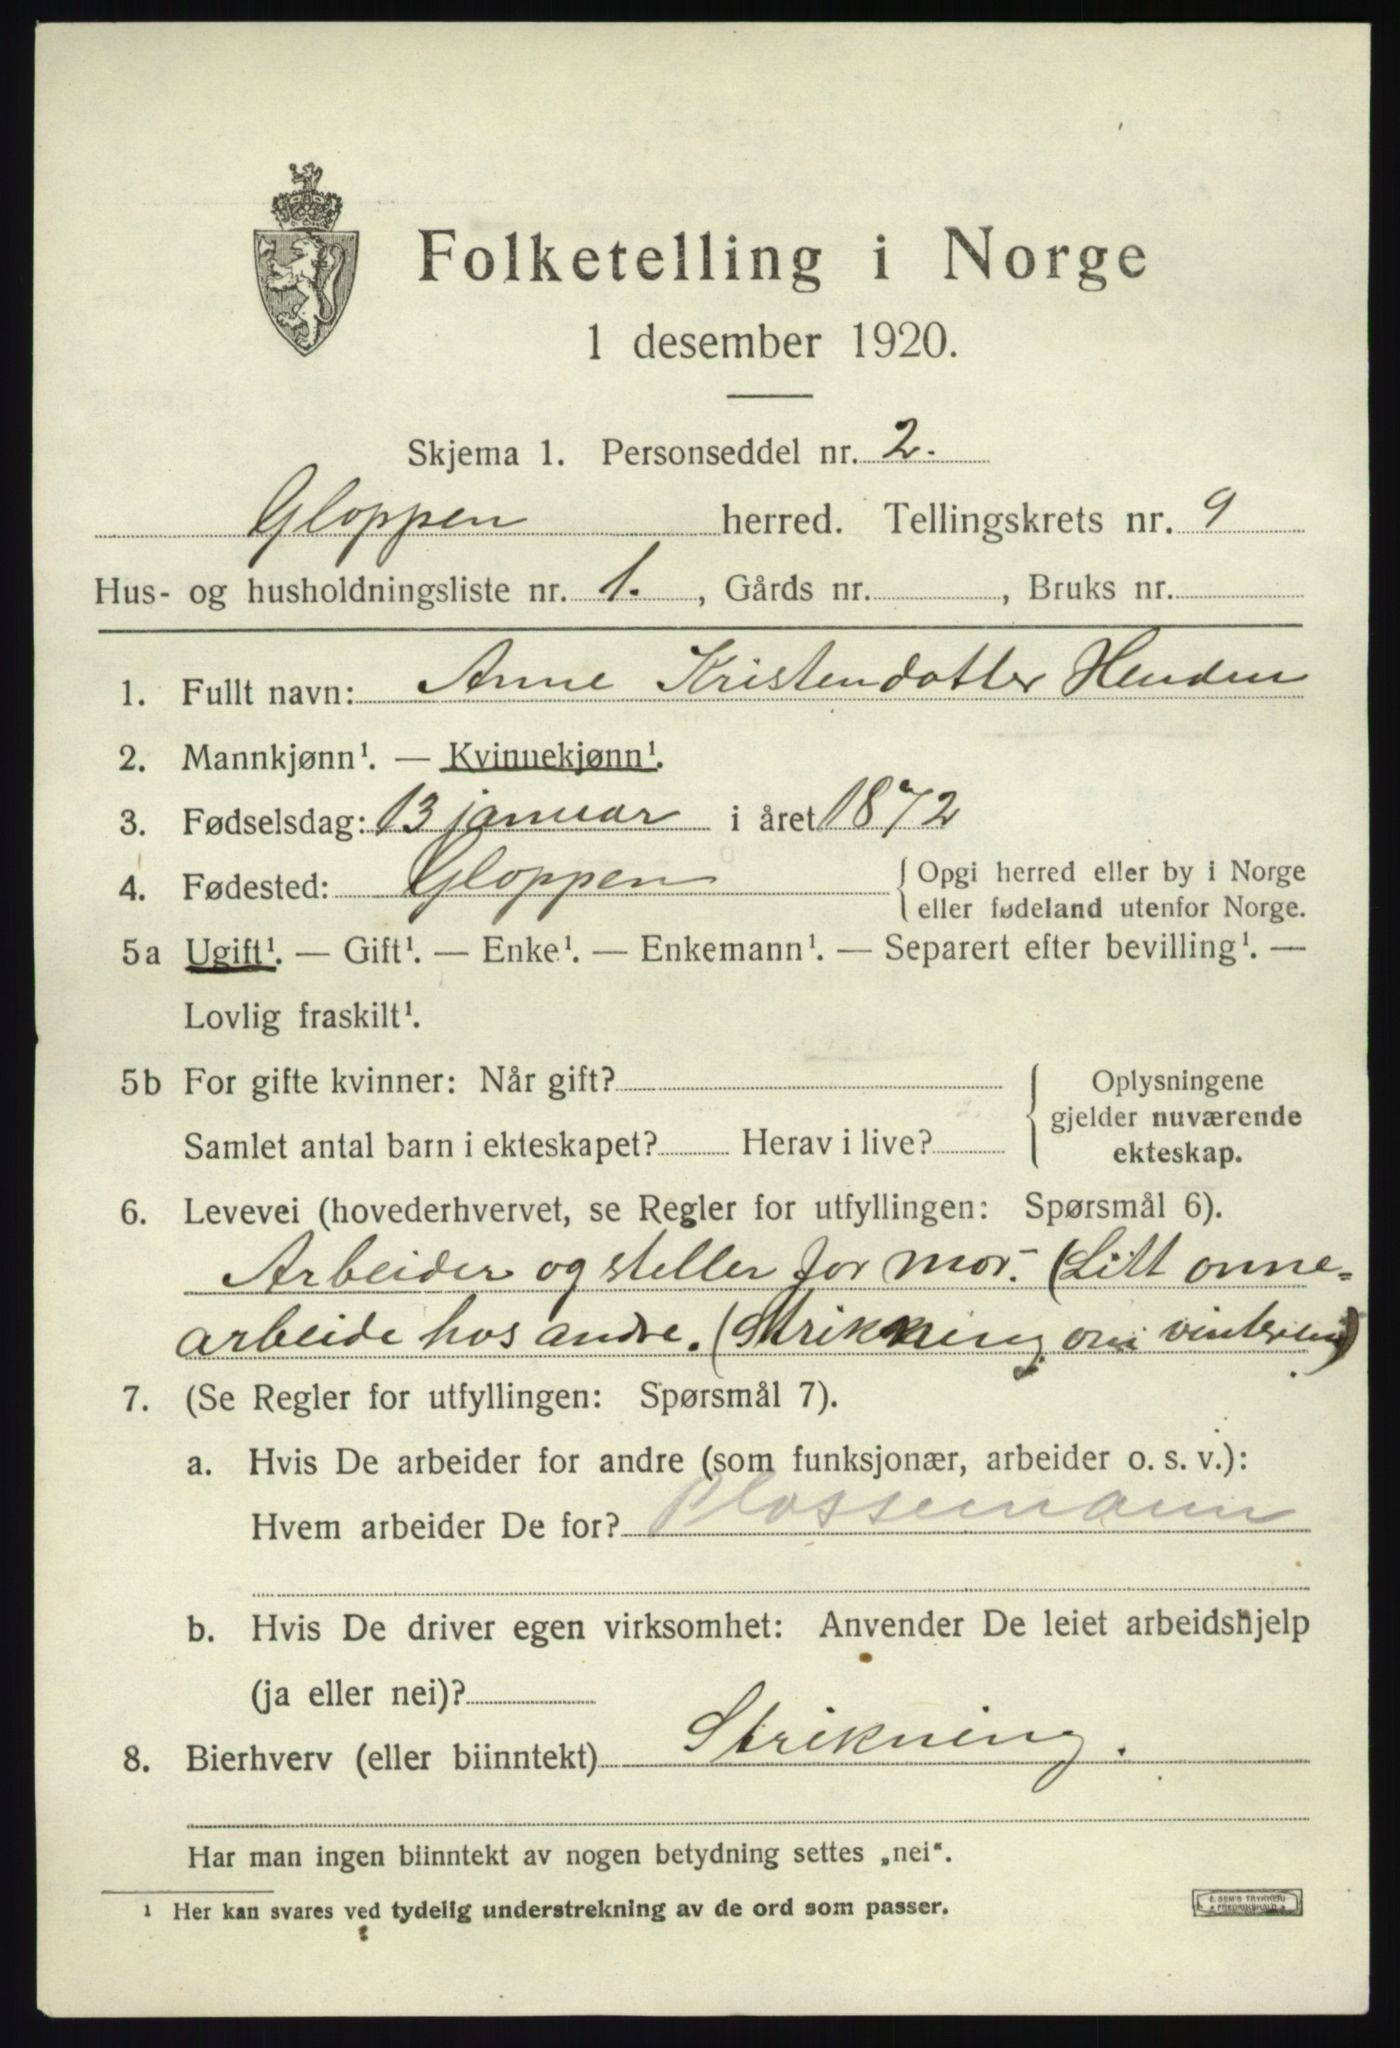 Folketelling i Norge
1 desember 1920.
Skjema 1. Personseddel nr. 2.
Gloppen herred. Tellingskrets nr. 9
Hus- og husholdningsliste nr. 1. , Gårds nr. , Bruks nr.
1. Fullt navn: Anne Kristendotter Henden
2. Mannkjønn¹. — Kvinnekjønn¹.
3. Fødselsdag: 13 januar i året 1872
4. Fødested: Gloppen { Opgi herred eller by i Norge
eller fødeland utenfor Norge.
5a Ugift¹. — Gift¹. — Enke¹. — Enkemann¹. — Separert efter bevilling¹. —
Lovlig fraskilt¹.
5b For gifte kvinner: Når gift? { Oplysningene
gjelder nuværende
Samlet antal barn i ekteskapet? Herav i live?
ekteskap.
6. Levevei (hovederhvervet, se Regler for utfyllingen: Spørsmål 6).
Arbeider og steller for mor. (Litt onne-
arbeide hos andre. (Strikkning om vinteren)
7. (Se Regler for utfyllingen: Spørsmål 7).
a. Hvis De arbeider for andre (som funksjonær, arbeider o. s. v.):
Hvem arbeider De for? Plassemann
b. Hvis De driver egen virksomhet: Anvender De leiet arbeidshjelp
(ja eller nei)?
8. Bierhverv (eller biinntekt) Strikning.
Har man ingen biinntekt av nogen betydning settes „nei“.
¹ Her kan svares ved tydelig understrekning av de ord som passer.
E. SEM'S TRYKKERI
FREDRIKSHALD